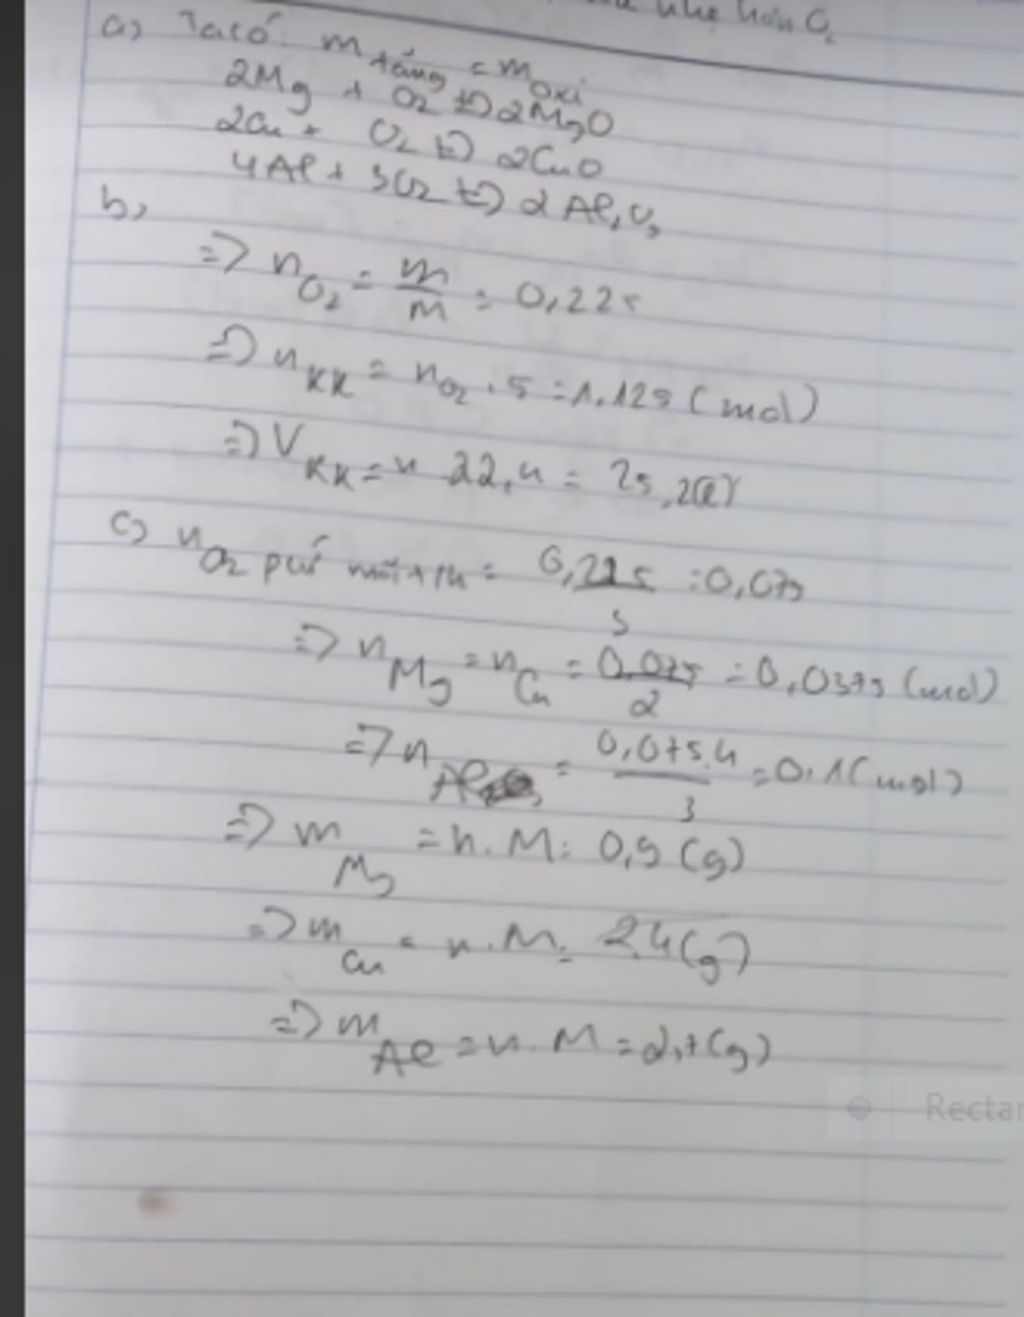 nhẹ hơn O2
a) Ta có: m tăng = m oxi
2Mg + O2 t-> 2MgO
2Cu + O2 t-> 2CuO
4Al + 3O2 t-> 2Al2O3
b,
=> nO2 = m/M = 0,225
=> nKK = nO2 . 5 = 1.125 (mol)
=> VKK = n 22,4 = 25,2(l)
c) nO2 pứ mỗi + th = 0,225/3 = 0,075
=> nMg = nCu = 0,075/2 = 0,0375 (mol)
=> nAl = 0,075.4/3 = 0.1(mol)
=> mMg = n.M = 0,9 (g)
=> mCu = n.M = 2,4(g)
=> mAl = n.M = 2,7(g)
Rectan